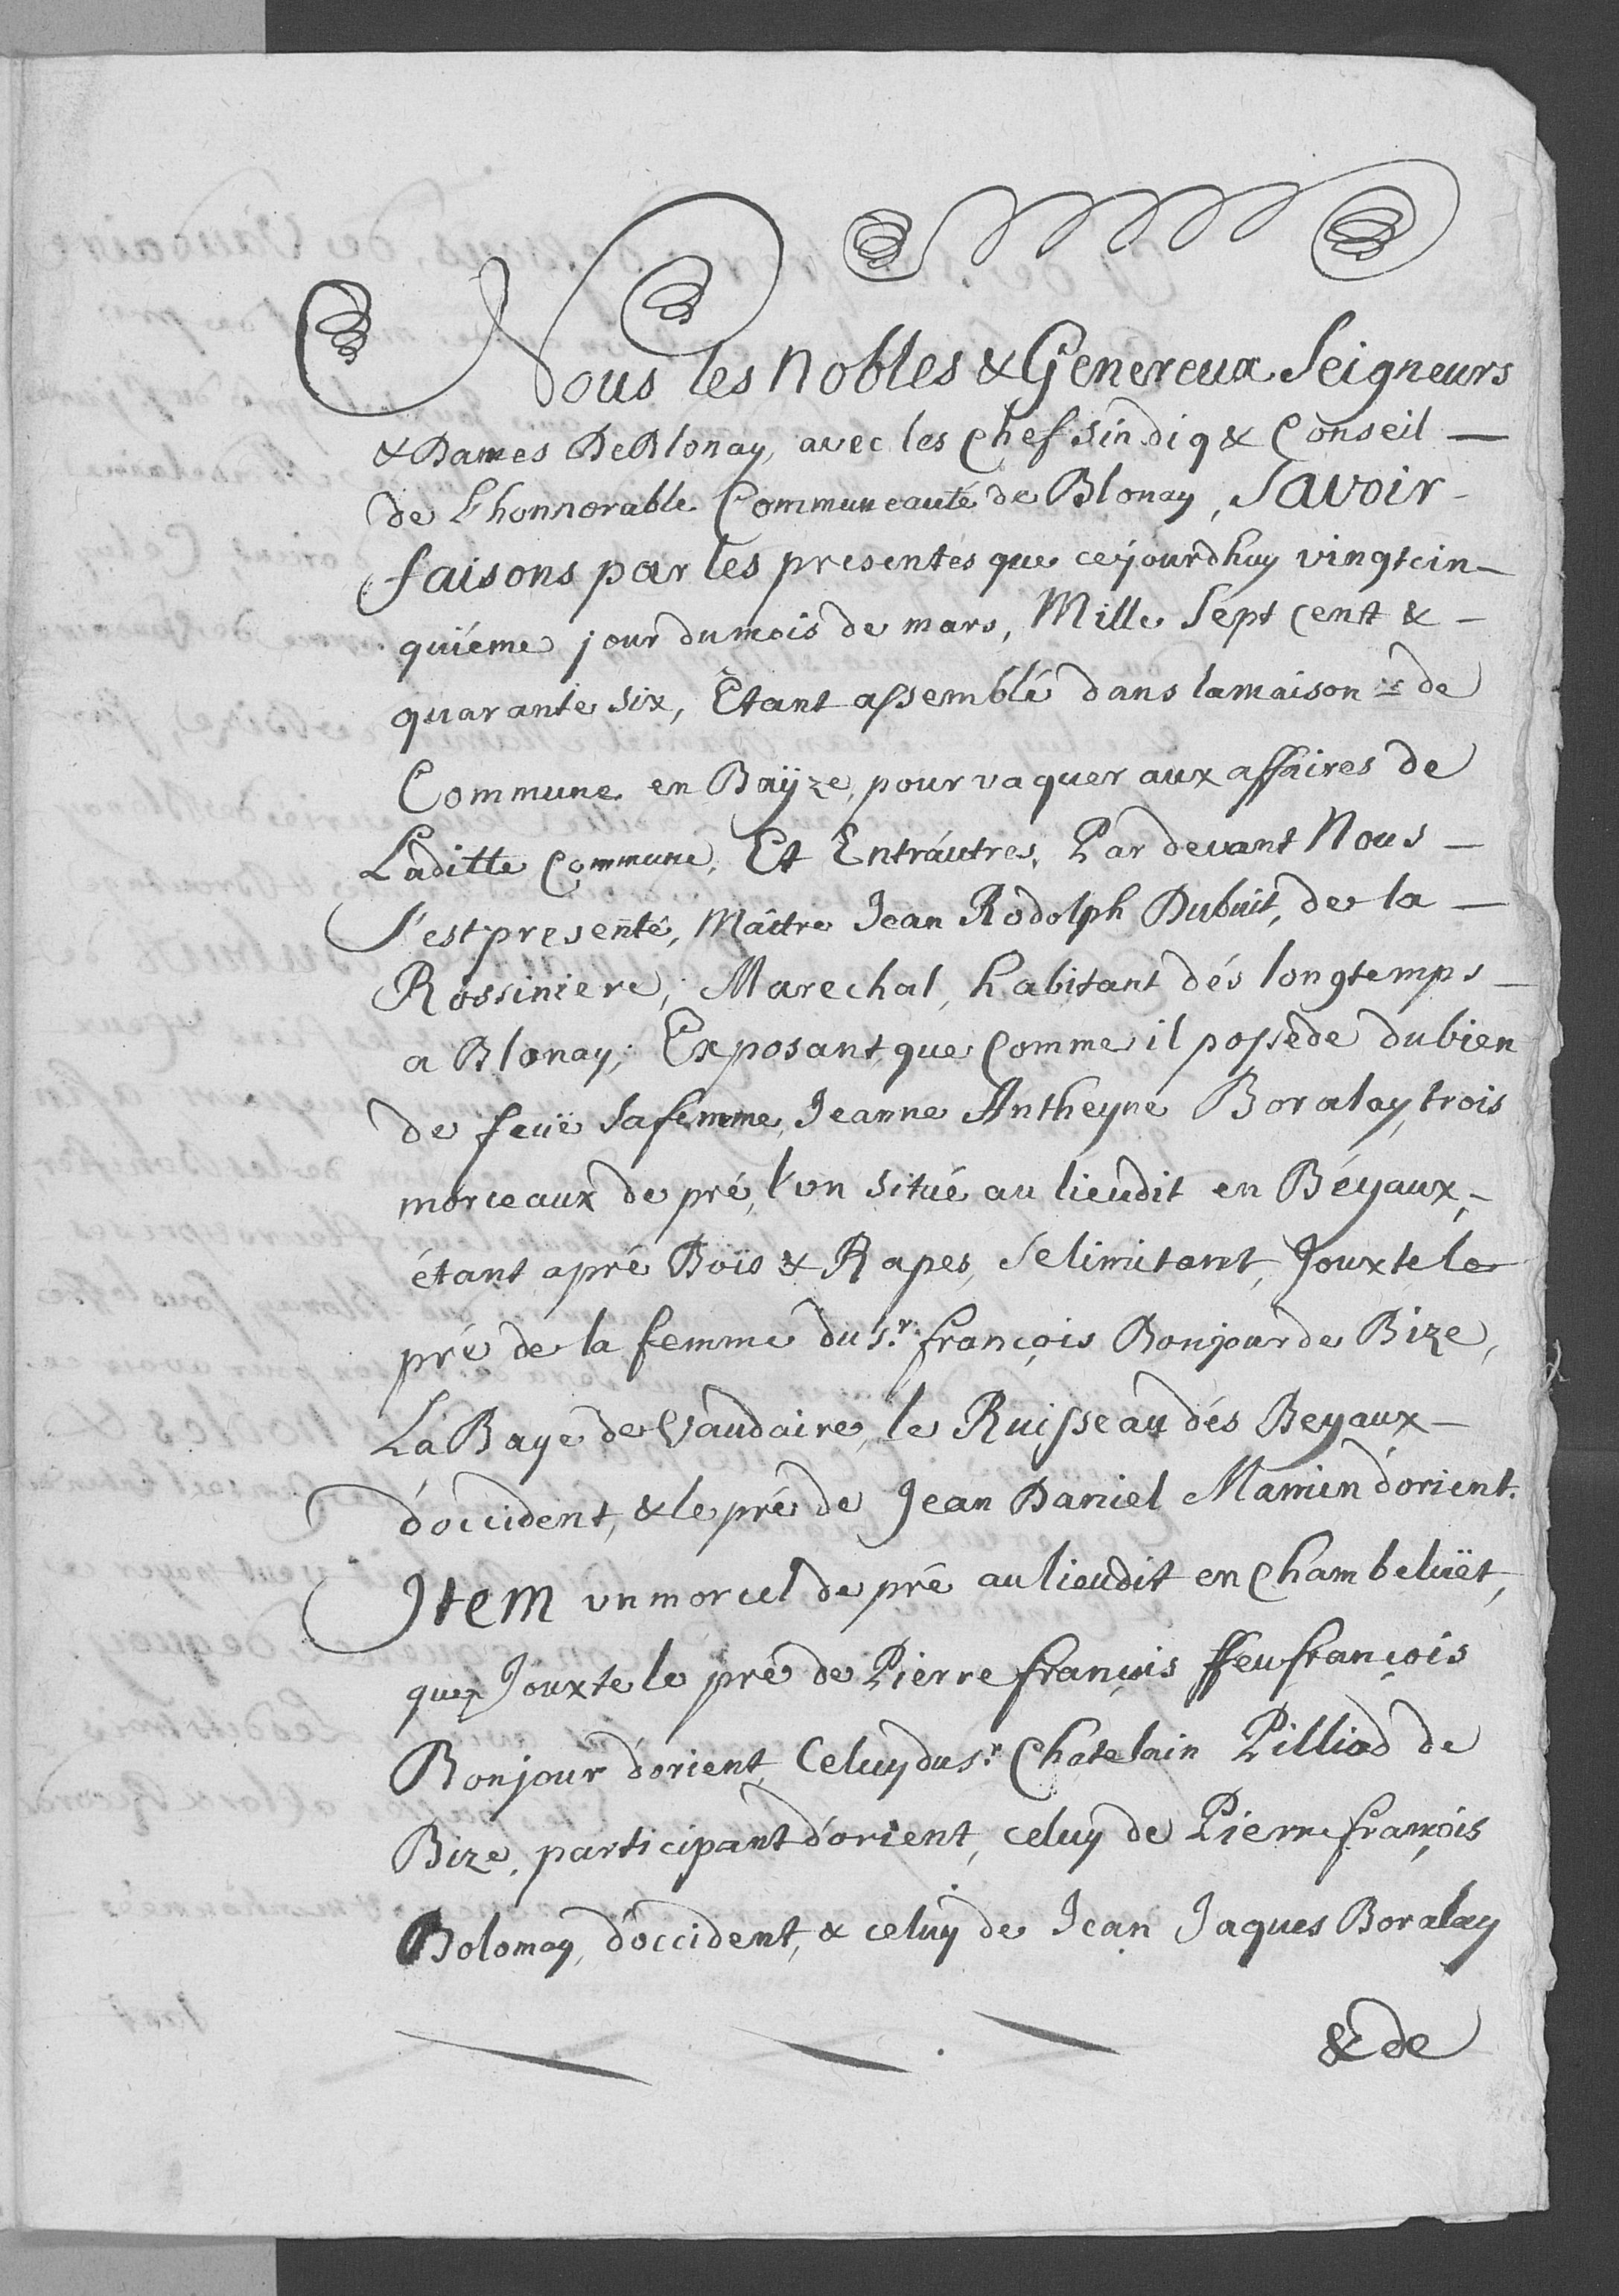 Nous les Nobles & Genereux Seigneurs
& Dames De Blonay, avec les Chef Sindiq & Conseil —
de Lhonnorable Communeauté de Blonay, Savoir -
faisons par les presentes que cejourdhuy vingtcin-
quiéme jour du mois de mars, Mille Sept Cent & -
quarante six, Etant assemblé dans lamaison = de
Commune en Baÿze, pour vaquer aux affaires de
Laditte Commune, Et Entráutres, Par devant Nous —
S'est presenté, Maître Jean Rodolph Dubuit, de la —
Rossiniere, Marechal, habitant dés longtemps —
a Blonay; Exposant que Comme il possede du bien
de feüe Safemme, Jeanne Antheyne Boralay, trois
morceaux de pré, l'un situé au lieudit en Béyaux, -
étant apré Bois & Rapes, Se limitant, Jouxte le
pré de la femme du Sr. françois Bonjour de Bize,
La Baye de Vaudaire, le Ruisseau dés Beyaux —
d'occident, & le pré de Jean Daniel Mamin d'orient.
Item un morcel de pré au lieudit en Chambeluët,
que Jouxte le pré de Pierre françois ffeu françois
Bonjour d'orient, Celuy du Sr. Chatelain Pilliod de
Bize, participant d'orient, celuy de Pierre françois
Bolomay, d'occident, & celuy de Jean Jaques Boralay
& de